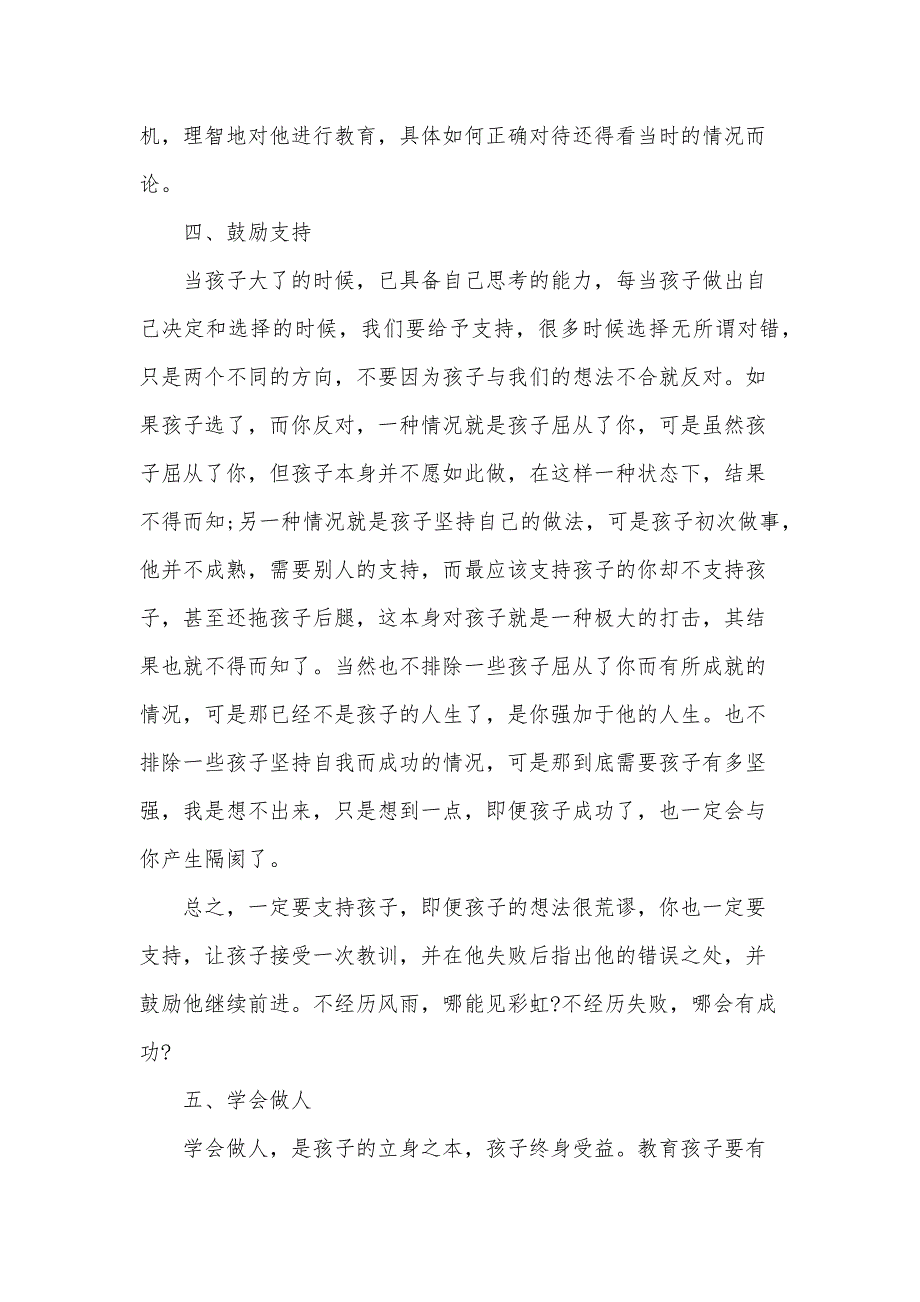 机，理智地对他进行教育，具体如何正确对待还得看当时的情况而
论。
四、鼓励支持
当孩子大了的时候，已具备自己思考的能力，每当孩子做出自
己决定和选择的时候，我们要给予支持，很多时候选择无所谓对错，
只是两个不同的方向，不要因为孩子与我们的想法不合就反对。如
果孩子选了，而你反对，一种情况就是孩子屈从了你，可是虽然孩
子屈从了你，但孩子本身并不愿如此做，在这样一种状态下，结果
不得而知;另一种情况就是孩子坚持自己的做法，可是孩子初次做事，
他并不成熟，需要别人的支持，而最应该支持孩子的你却不支持孩
子，甚至还拖孩子后腿，这本身对孩子就是一种极大的打击，其结
果也就不得而知了。当然也不排除一些孩子屈从了你而有所成就的
情况，可是那已经不是孩子的人生了，是你强加于他的人生。也不
排除一些孩子坚持自我而成功的情况，可是那到底需要孩子有多坚
强，我是想不出来，只是想到一点，即便孩子成功了，也一定会与
你产生隔阂了。
总之，一定要支持孩子，即便孩子的想法很荒谬，你也一定要
支持，让孩子接受一次教训，并在他失败后指出他的错误之处，并
鼓励他继续前进。不经历风雨，哪能见彩虹?不经历失败，哪会有成
功?
五、学会做人
学会做人，是孩子的立身之本，孩子终身受益。教育孩子要有